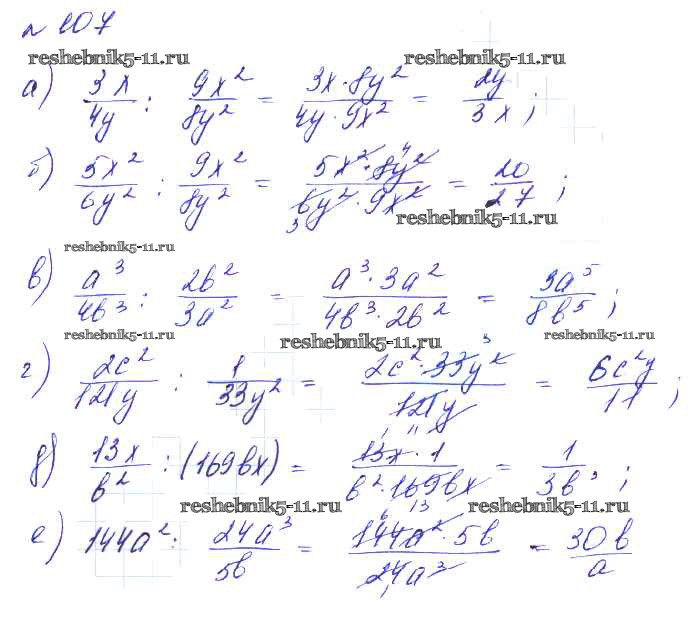 № 107
reshebnik5-11.ru reshebnik5-11.ru
а) 3x/4y : 9x²/8y² = 3x·8y²/4y·9x² = 2y/3x ;
б) 5x²/6y² : 9x²/8y² = 5x²·8y²/6y²·9x² = 20/27 ;
reshebnik5-11.ru
reshebnik5-11.ru
в) a³/4b³ : 2b²/3a² = a³·3a²/4b³·2b² = 3a⁵/8b⁵ ;
reshebnik5-11.ru reshebnik5-11.ru reshebnik5-11.ru
г) 2c²/121y : 1/33y² = 2c²·33y²/121y = 6c²y/11 ;
д) 13x/b² : (169bx) = 13x·1/b²·169bx = 1/3b³ ;
reshebnik5-11.ru reshebnik5-11.ru
е) 144a² : 24a³/5b = 144a²·5b/24a³ = 30b/a